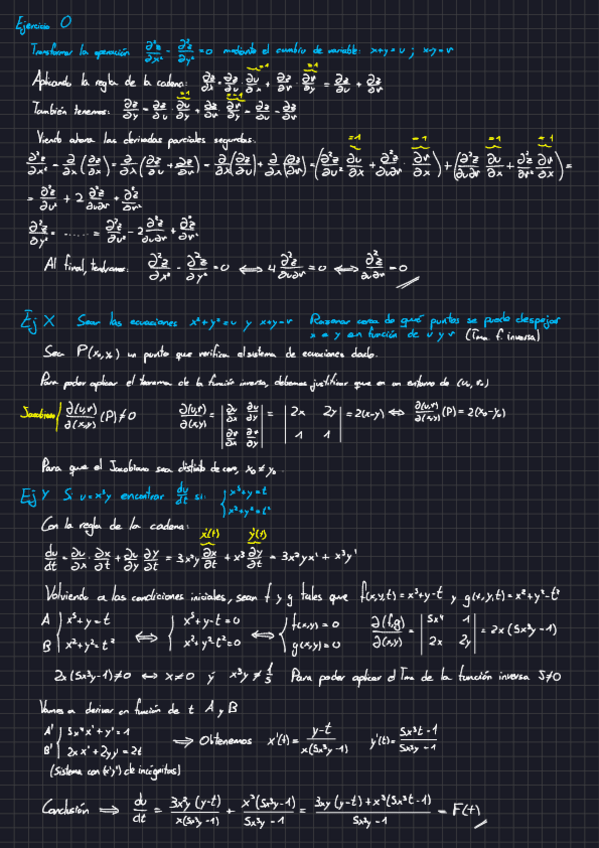 Ejercicio 0
Transformar la ecuación ∂²z/∂x² - ∂²z/∂y² = 0 mediante el cambio de variable: x+y=u ; x-y=v
Aplicando la regla de la cadena: ∂z/∂x = ∂z/∂u ∂u/∂x + ∂z/∂v · ∂v/∂x = ∂z/∂u + ∂z/∂v
También tenemos: ∂z/∂y = ∂z/∂u ∂u/∂y + ∂z/∂v ∂v/∂y = ∂z/∂u - ∂z/∂v
Viendo ahora las derivadas parciales segundas:
∂²z/∂x² = ∂/∂x (∂z/∂x) = ∂/∂x (∂z/∂u + ∂z/∂v) = ∂/∂x (∂z/∂u) + ∂/∂x (∂z/∂v) = (∂²z/∂u² ∂u/∂x + ∂²z/∂u∂v ∂v/∂x) + (∂²z/∂u∂v ∂u/∂x + ∂²z/∂v² ∂v/∂x) =
= ∂²z/∂u² + 2 ∂²z/∂u∂v + ∂²z/∂v²
∂²z/∂y² = ...... = ∂²z/∂u² - 2 ∂²z/∂u∂v + ∂²z/∂v²
Al final, tendremos: ∂²z/∂x² - ∂²z/∂y² = 0 ⟺ 4 ∂²z/∂u∂v = 0 ⟺ ∂²z/∂u∂v = 0
Ej X Sean las ecuaciones x²+y²=u y x+y=v Razonar cerca de qué puntos se puede despejar
x e y en función de u y v (Tma f. inversa)
Sea P(x₀,y₀) un punto que verifica el sistema de ecuaciones dado.
Para poder aplicar el teorema de la función inversa, debemos justificar que en un entorno de (u₀,v₀)
Jacobiano | ∂(u,v)/∂(x,y) (P) ≠ 0 ∂(u,v)/∂(x,y) = |∂u/∂x ∂u/∂y ; ∂v/∂x ∂v/∂y| = |2x 2y ; 1 1| = 2(x-y) ⟺ ∂(u,v)/∂(x,y) (P) = 2(x₀-y₀)
Para que el Jacobiano sea distinto de cero, x₀ ≠ y₀.
Ej Y Si u = x³y encontrar du/dt si: { x⁵+y=t ; x²+y³=t²
Con la regla de la cadena: x'(t) y'(t)
du/dt = ∂u/∂x · ∂x/∂t + ∂u/∂y ∂y/∂t = 3x²y ∂x/∂t + x³ ∂y/∂t = 3x²yx' + x³y'
Volviendo a las condiciones iniciales, sean f y g tales que f(x,y,t) = x⁵+y-t y g(x,y,t) = x²+y²-t²
A | x⁵+y=t ⟺ { x⁵+y-t=0 ⟺ { f(x,y)=0 ∂(f,g)/∂(x,y) = |5x⁴ 1 ; 2x 2y| = 2x(5x³y-1)
B | x²+y²=t² { x²+y²-t²=0 { g(x,y)=0
2x(5x³y-1)≠0 ⟺ x≠0 y x³y≠1/5 Para poder aplicar el Tma de la función inversa J≠0
Vamos a derivar en función de t A y B
A' | 5x⁴x'+y'=1 ⟹ Obtenemos x'(t) = (y-t)/(x(5x³y-1)) y'(t) = (5x³t-1)/(5x³y-1)
B' | 2xx'+2yy'=2t
(Sistema con (x',y') de incógnitas)
Conclusión ⟹ du/dt = 3x²y(y-t)/(x(5x³y-1)) + x³(5x³y-1)/(5x³y-1) = (3xy(y-t)+x³(5x³t-1))/(5x³y-1) = F(t)